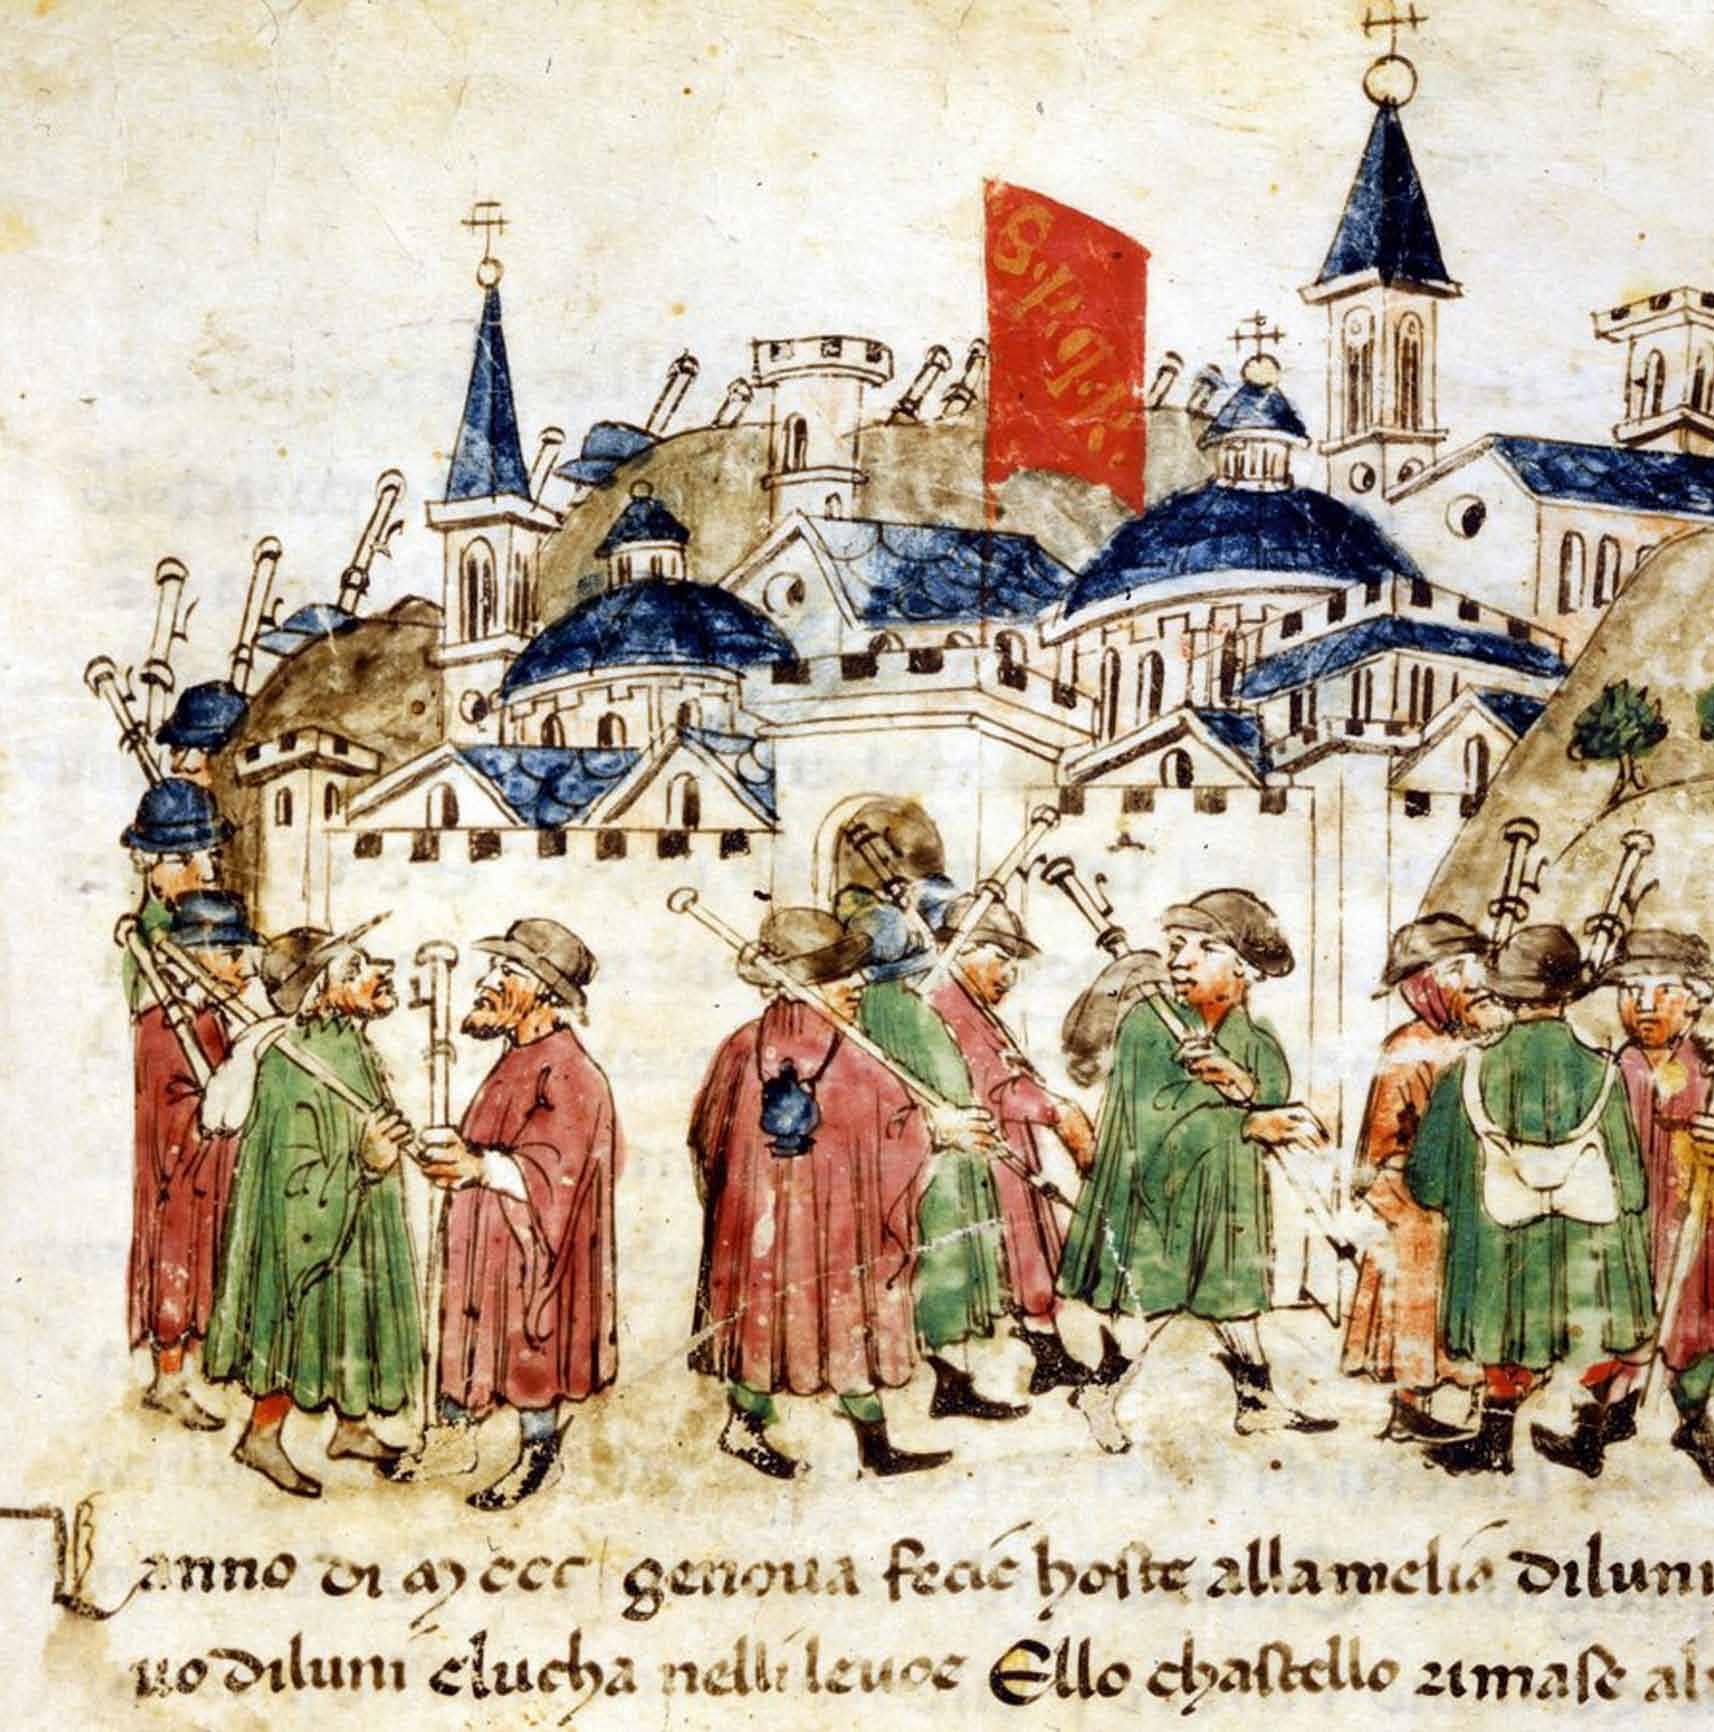 S.P.Q.R.
Lanno di MCCC genoua fecie hoste allamelia diluni
uo diluni elucha nelli leuoe Ello chastello rimase al